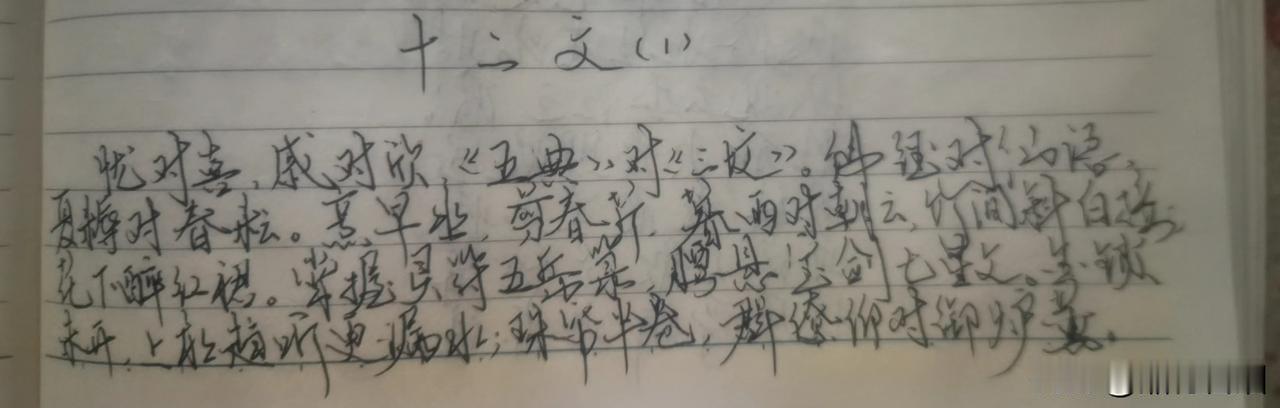 十二文(1)
忧对喜,戚对欣,《五典》对《三坟》。佛经对仙语,
夏耨对春耘。烹早韭,剪春芹,暮雨对朝云,竹间斜白接,
花下醉红裙。掌握灵符五岳箓,腰悬宝剑七星文。金锁
未开,上相趋听宫漏永;珠帘半卷,群僚仰对御炉薰。